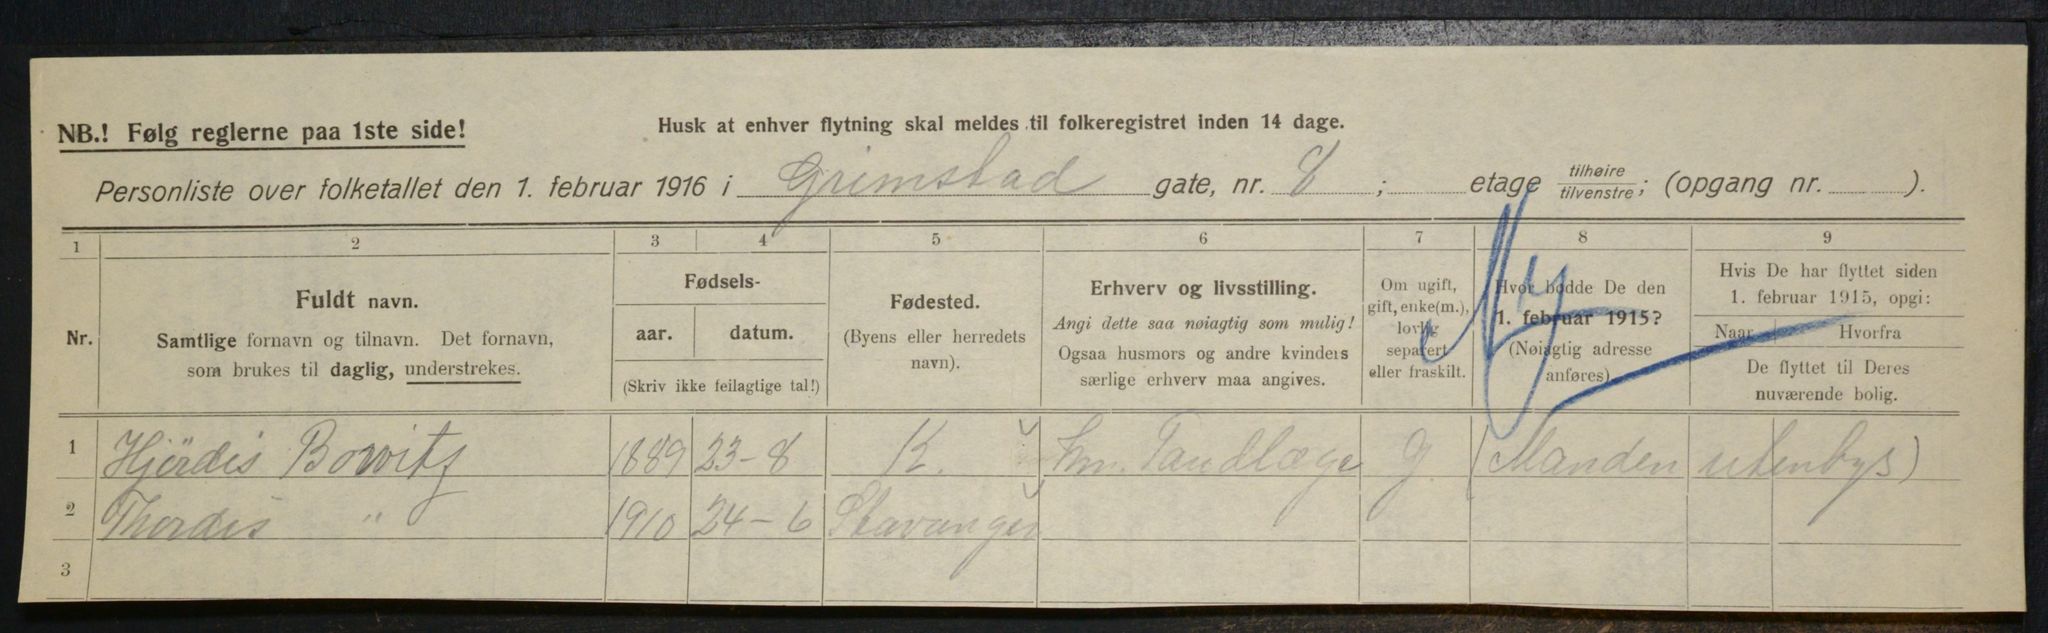 NB.! Følg reglerne paa 1ste side!
Husk at enhver flytning skal meldes til folkeregistret inden 14 dage.
Personliste over folketallet den 1. februar 1916 i Grimstad gate, nr. 8 ; etage tilhøire/tilvenstre; (opgang nr. ).
1 2 3 4 5 6 7 8 9
Nr.
Fuldt navn.
Samtlige fornavn og tilnavn. Det fornavn,
som brukes til daglig, understrekes.
Fødsels-
aar. datum.
(Skriv ikke feilagtige tal!)
Fødested.
(Byens eller herredets
navn).
Erhverv og livsstilling.
Angi dette saa nøiagtig som mulig!
Ogsaa husmors og andre kvinders
særlige erhverv maa angives.
Om ugift,
gift, enke(m.),
lovlig
separert
eller fraskilt.
Hvor bodde De den
1. februar 1915?
(Nøiagtig adresse
anføres)
Hvis De har flyttet siden
1. februar 1915, opgi:
Naar Hvorfra
De flyttet til Deres
nuværende bolig.
Ny
1 Hjördis Bowitz 1889 23-8 K. Tandlæge g. (Manden utenbys)
2 Thordis " 1910 24-6 Stavanger
3